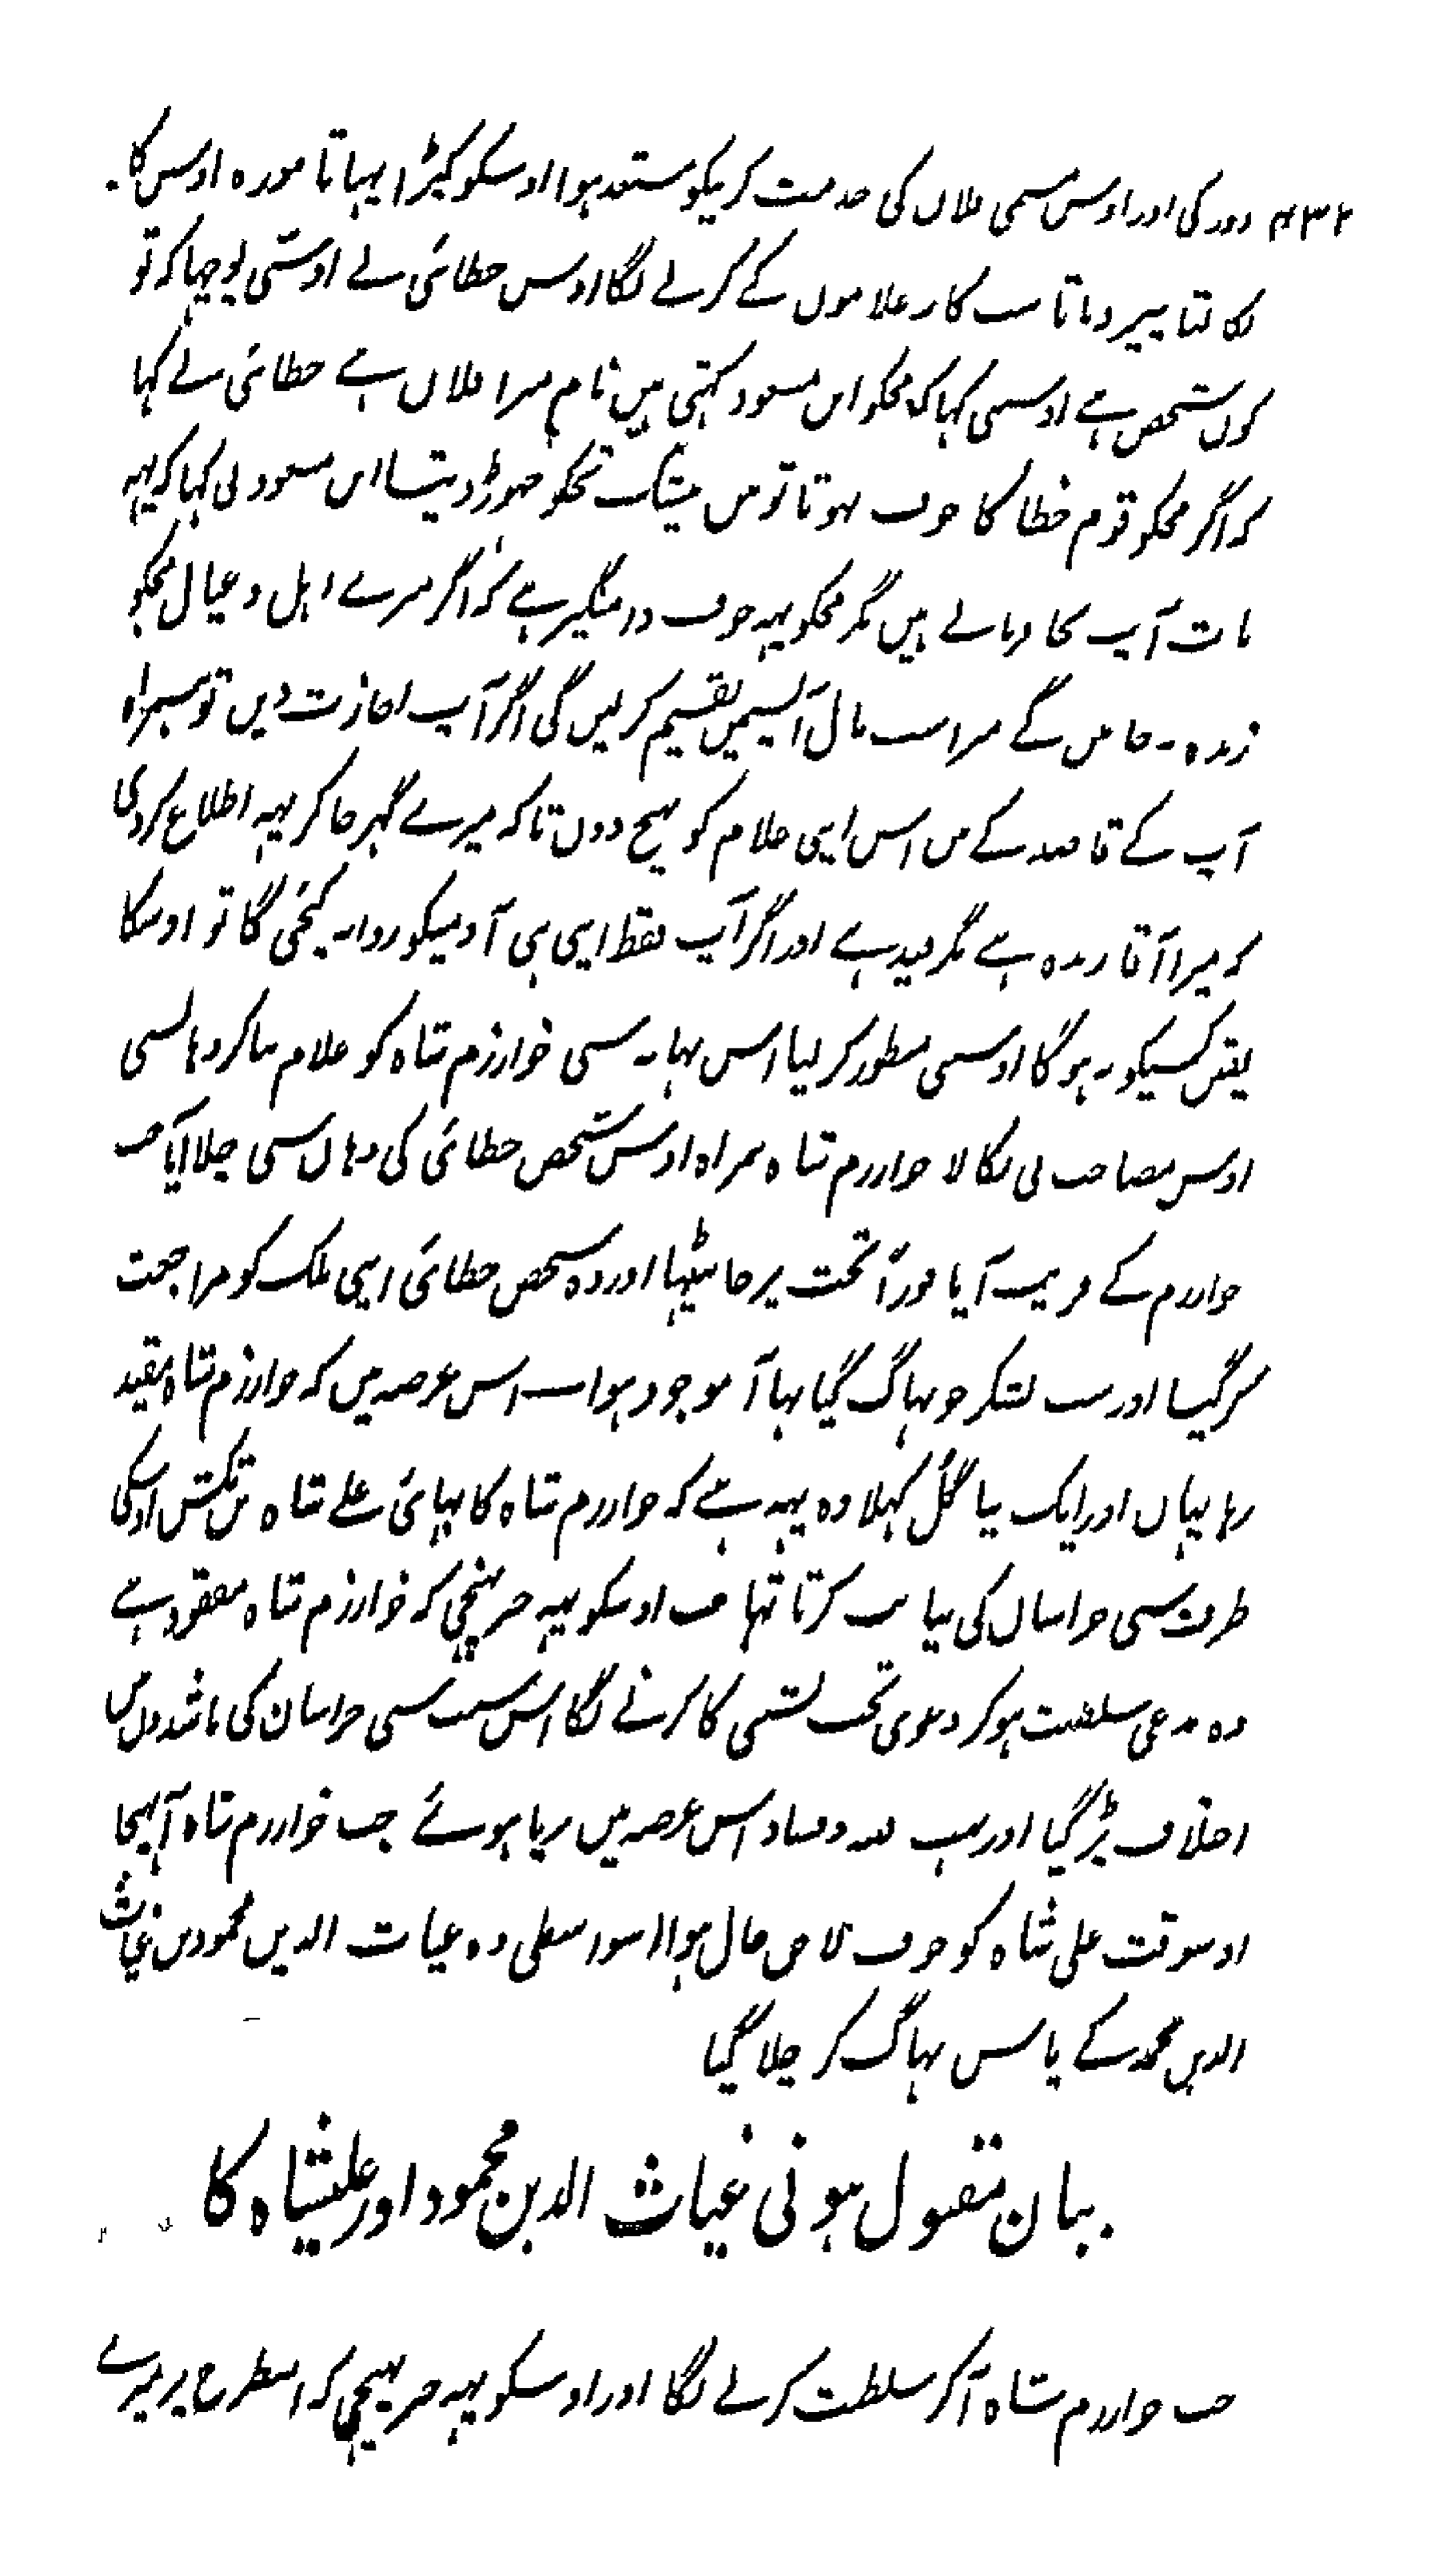 ۴۳۲ دور کی اور اوس مسمی فلاں کی خدمت کرنیکو مستعد ہوا اوسکو کپڑا پہناتا موزہ اوس کا
نکالتا پیر دباتا سب کار غلاموں کے کرنے لگا اوس خطائی نے اوستی پوچہا کہ تو
کون شخص ہے اوسنی کہا کہ مجکو ابن مسعود کہتی ہیں نام میرا فلاں ہے خطائی نے کہا
کہ اگر مجکو قوم خطا کا خوف نہوتا تو میں بیشک تجکو چھوڑ دیتا ابن مسعود نی کہا کہ یہہ
بات آپ بجا فرماتے ہیں مگر مجکو یہہ خوف دامنگیر ہے کہ اگر میرے اہل و عیال مجکو
زندہ نہ جانیں گے میرا سب مال آپسمیں تقسیم کر لیں گی اگر آپ اجازت دیں تو ہمراہ
آپ کے قاصد کے میں اس اپنی غلام کو بھیج دوں تاکہ میرے گہر جا کر یہہ اطلاع کر دی
کہ میرا آقا زندہ ہے مگر قید ہے اور اگر آپ فقط اپنی ہی آدمیکو روانہ کیجئی گا تو اوسکا
یقین کسیکو نہ ہوگا اوسنی منظور کر لیا اس بہانہ سی خوارزم شاہ کو غلام بنا کر وہانسی
اوس مصاحب نی نکالا خوارزم شاہ ہمراہ اوس شخص خطائی کی وہاں سی چلا آیا جب
خوارزم کے قریب آیا فوراً تخت پر جا بیٹھا اور وہ شخص خطائی اپنی ملک کو مراجعت
کر گیا اور سب لشکر جو بہاگ گیا تہا آ موجود ہوا اس عرصہ میں کہ خوارزم شاہ مقید
رہا یہاں اور ایک نیا گُل کہلا وہ یہہ ہے کہ خوارزم شاہ کا بہائی علے شاہ بن تکش اوسکی
طرف سی خراسان کی نیابت کرتا تہا جب اوسکو یہہ خبر پہنچی کہ خوارزم شاہ مفقود ہے
وہ مدعی سلطنت ہو کر دعوی تخت نشینی کا کرنے لگا اس سبب سی خراسان کی باشندوں میں
اختلاف پڑ گیا اور بہت فتنہ و فساد اس عرصہ میں برپا ہوئے جب خوارزم شاہ آ پہنچا
اوسوقت علی شاہ کو خوف لاحق حال ہوا اسواسطی وہ غیاث الدین محمود بن غیاث
الدین محمد کے پاس بہاگ کر چلا گیا
بیان مقتول ہونی غیاث الدین محمود اور علیشاہ کا
جب خوارزم شاہ آ کر سلطنت کرنے لگا اور اوسکو یہہ خبر پہنچی کہ اسطرح پر میرے